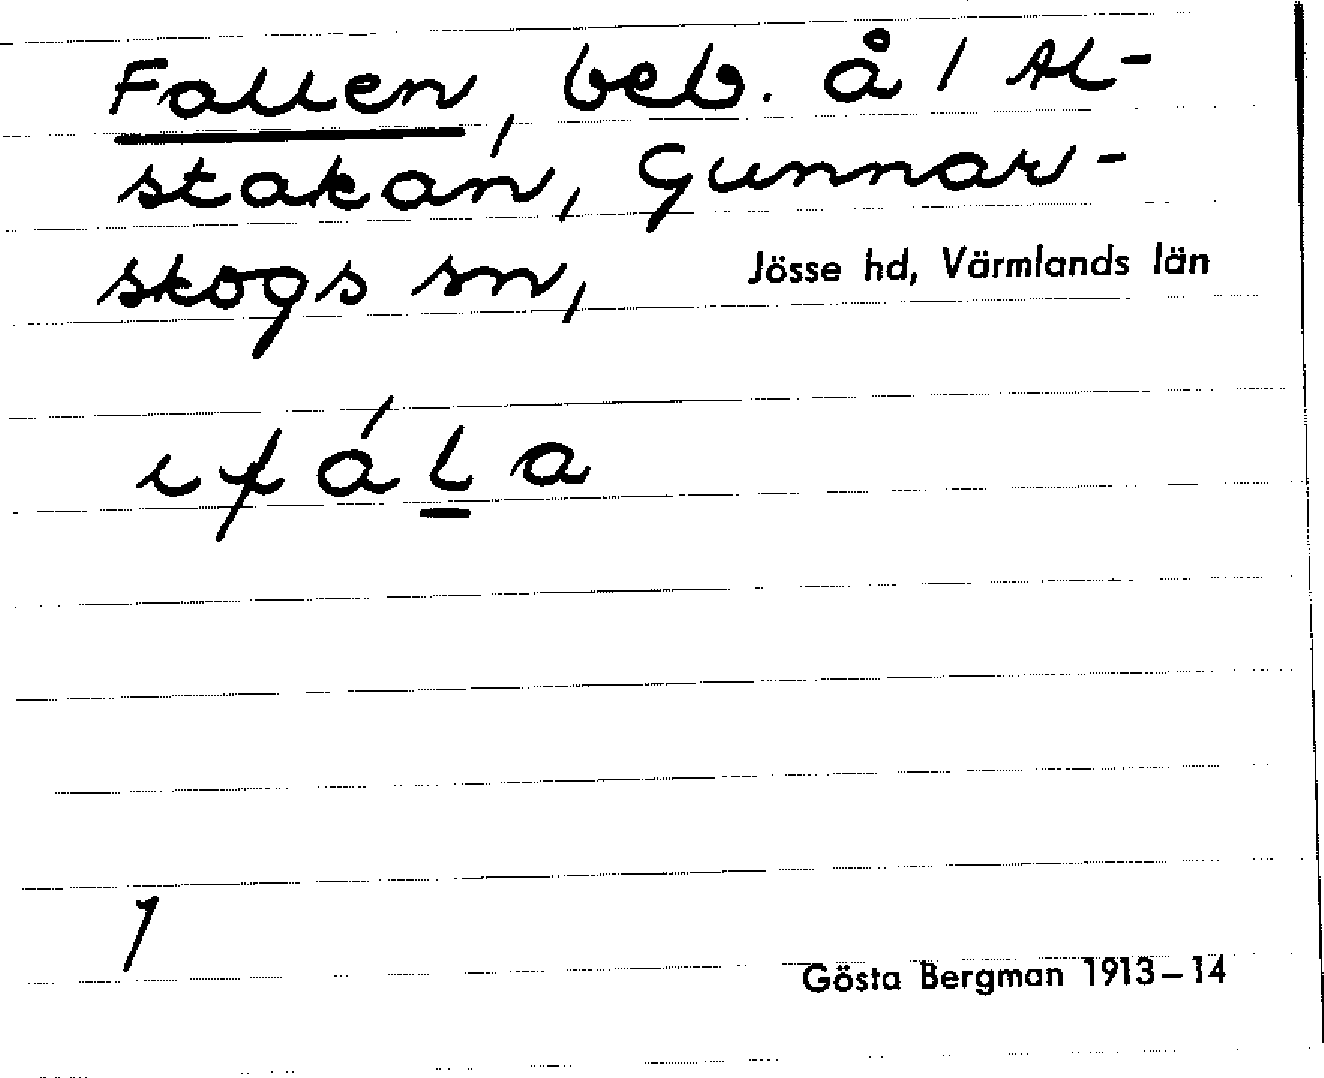 Fallen, beb. å 1 Al-
stakan, Gunnar-
skogs sn, Jösse hd, Värmlands län
ɩfáḻa
1
Gösta Bergman 1913–14